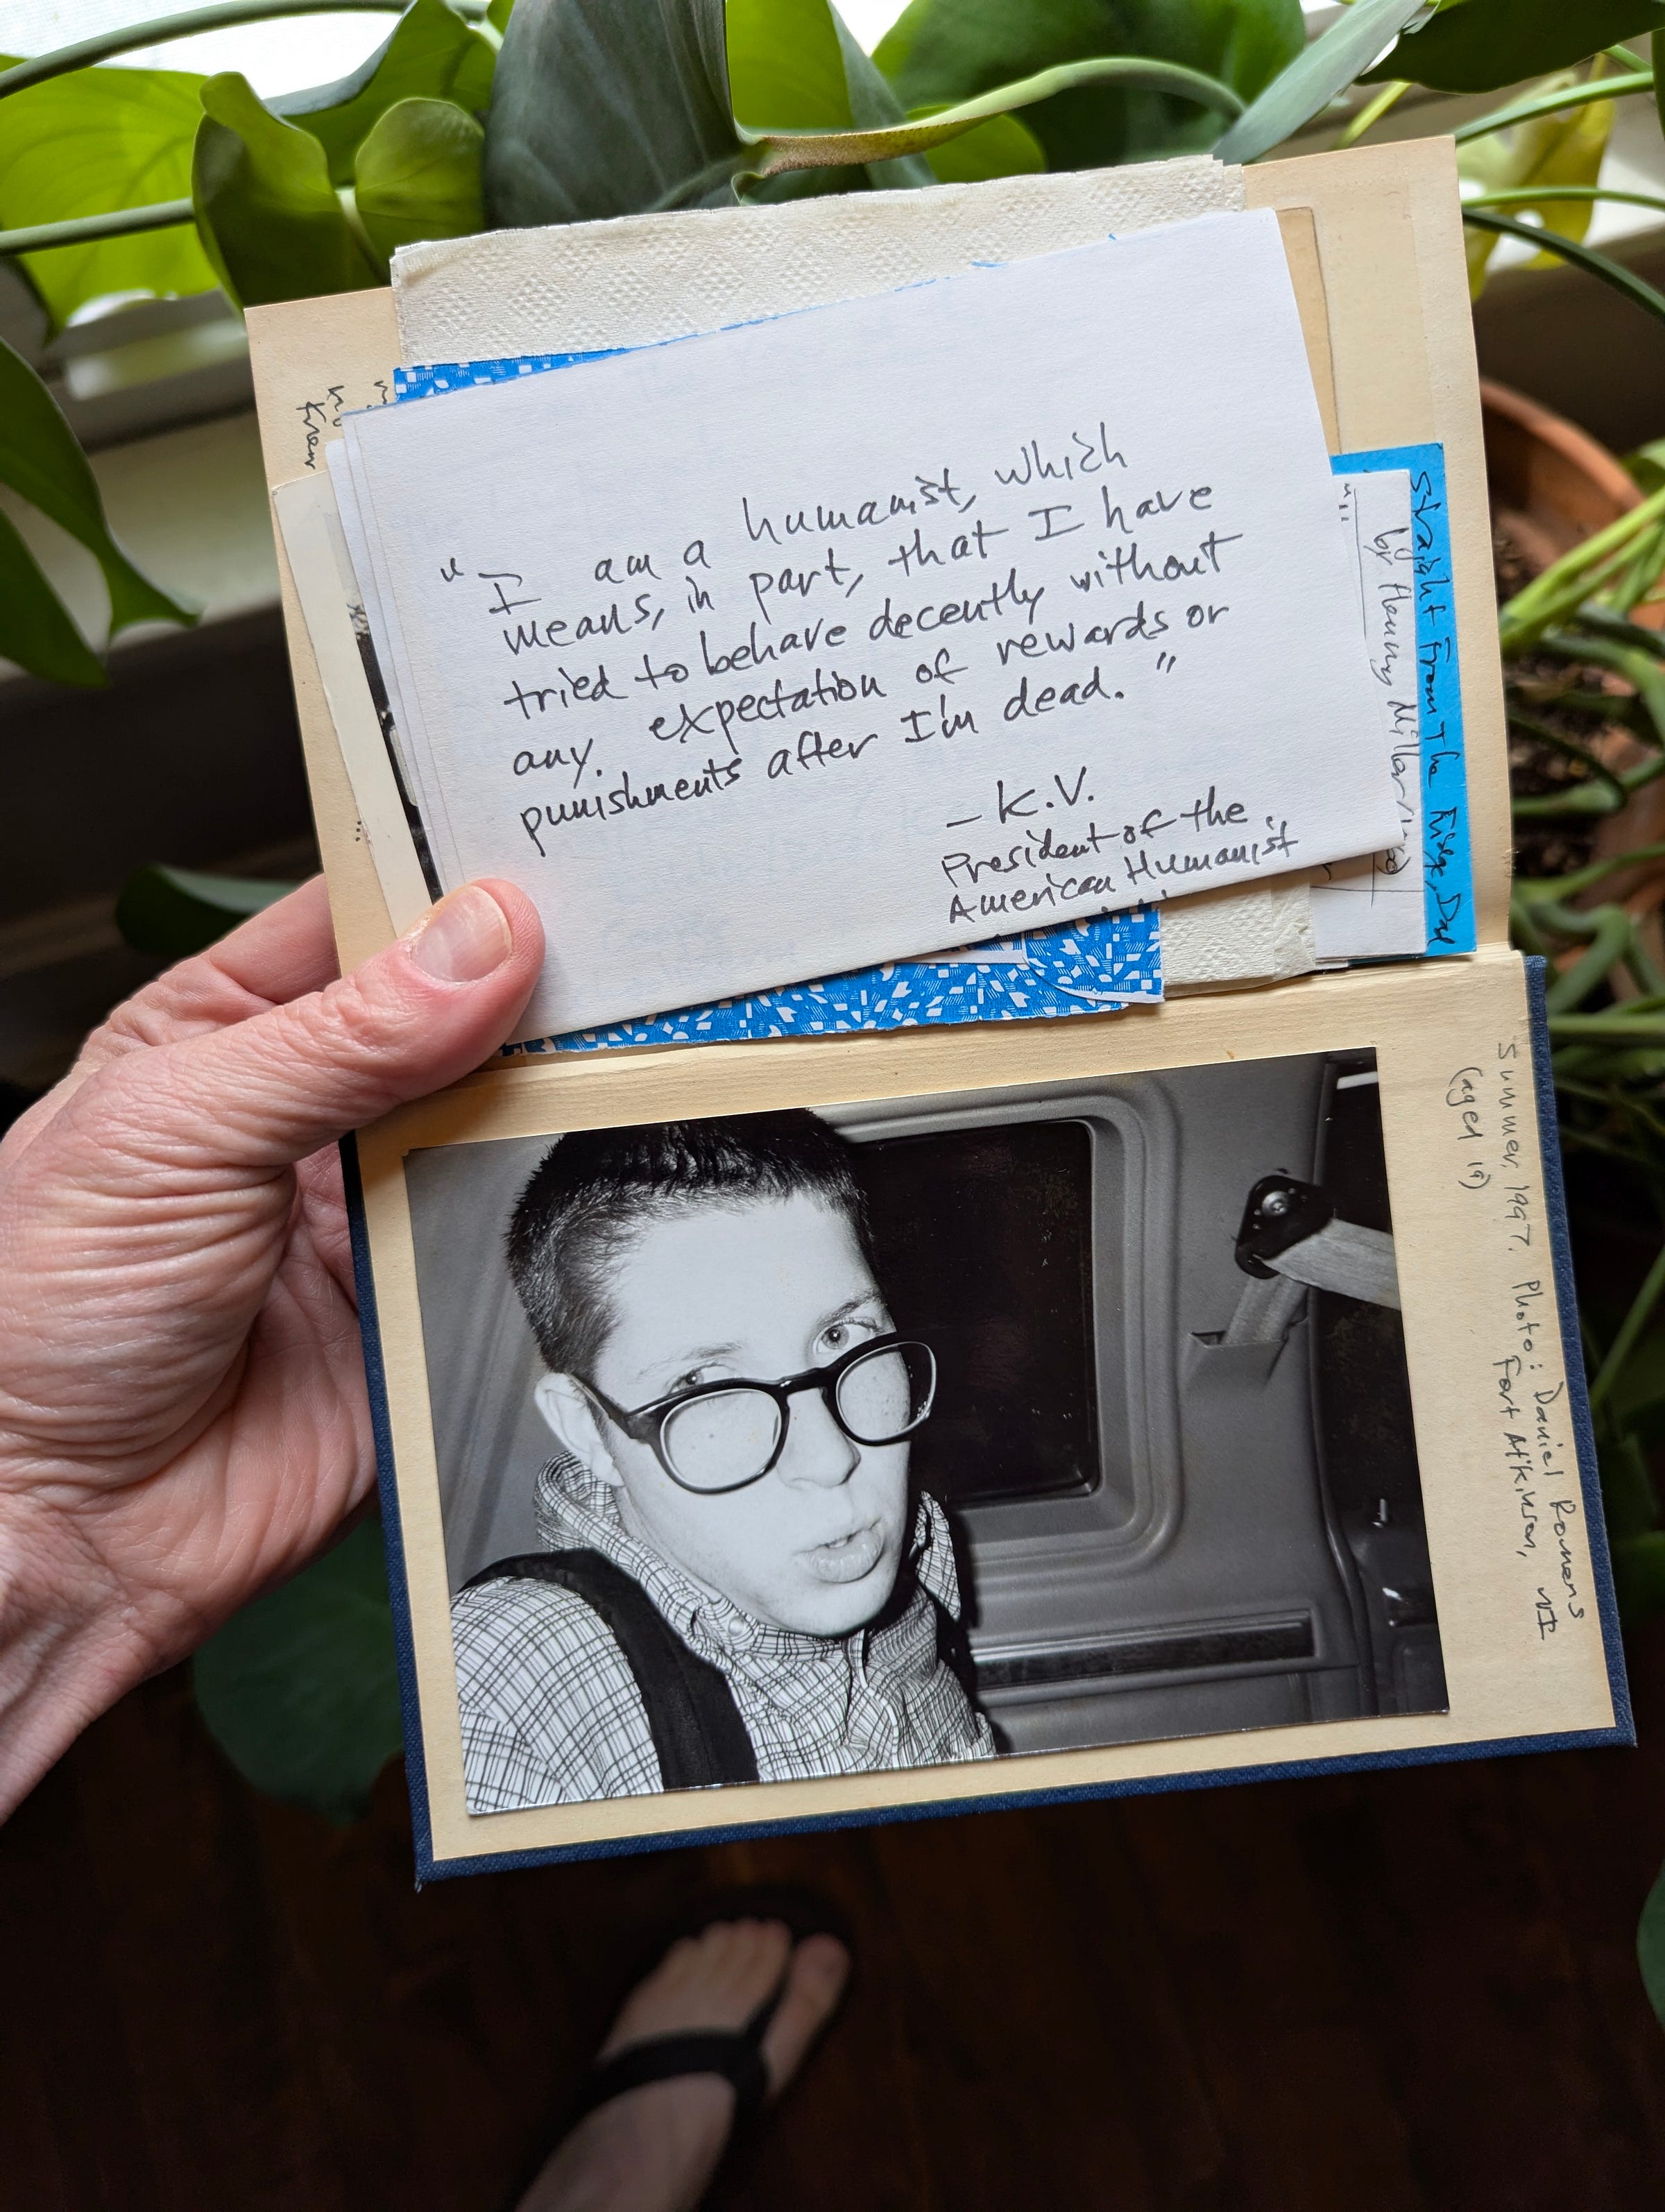 "I am a humanist, which
means, in part, that I have
tried to behave decently without
any expectation of rewards or
punishments after I'm dead."
– K.V.
President of the
American Humanist
Straight From The Fridge, Dad
by Henny Miller
Summer, 1997. Photo: Daniel Romens
(aged 19)
Fort Atkinson, WI